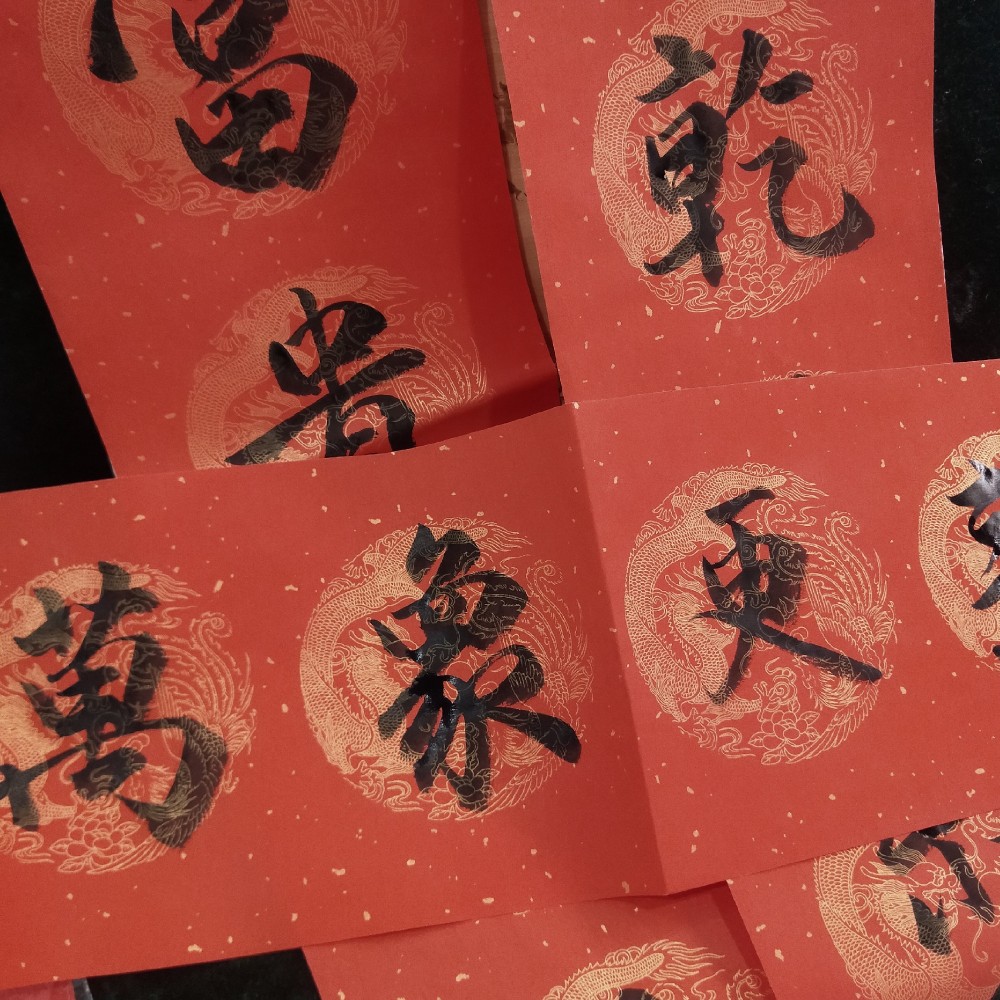 富貴
乾
萬象更